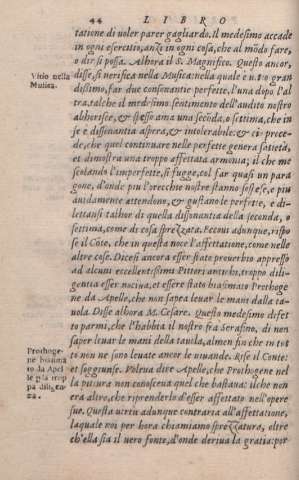 44 LIBRO
tatione di uoler parer gagliardo. Il medesimo accade
in ogni esercitio, anzi in ogni cosa, che al mõdo fare,
o dir si possa. Alhora il S. Magnifico. Questo ancor,
Vitio nella
Musica.
disse, si uerifica nella Musica: nella quale è uitio gran
dissimo, far due consonantie perfette, l'una dopo l'al
tra, talche il medesimo sentimento dell'audito nostro
abhorisce, & spesso ama una secõda, o settima, che in
se è dissonantia aspera, & intolerabile: & ciò proce-
de, che quel continuare nelle perfette genera satietà,
et dimostra una troppo affettata armonia; il che me
scolando l'imperfette, si fugge, col far quasi un para
gone, d'onde piu l'orecchie nostre stanno sospese, e piu
auidamente attendono, & gustano le perfette, e di-
lettansi talhor di quella dissonantia della seconda, o
settima, come di cosa sprezzata. Eccoui adunque, rispo
se il Cõte, che in questa noce l'affettatione, come nelle
altre cose. Dicesi ancora esser stato prouerbio appresso
ad alcuni eccellentissimi Pittori antichi, troppo dili-
gentia esser nociua, et essere stato biasimato Prothoge
ne da Apelle, che non sapea leuar le mani dalla ta-
uola. Disse alhora M. Cesare. Questo medesimo difet
to parmi, che l'habbia il nostro fra Serafino, di non
saper leuar le mani della tauola, almen fin che in tut
Prothoge-
ne biasima
to da Apel
le p̃ la trop
pa diligen-
za.
to non ne sono leuate ancor le uiuande. Rise il Conte:
et soggiunse. Voleua dire Apelle, che Prothogene nel
la pittura non conosceua quel che bastaua: ilche non
era altro, che riprenderlo d'esser affettato nell'opere
sue. Questa uirtù adunque contraria all'affettatione,
laquale noi per hora chiamiamo sprezzatura, oltre
ch'ella sia il uero fonte, d'onde deriua la gratia: por-